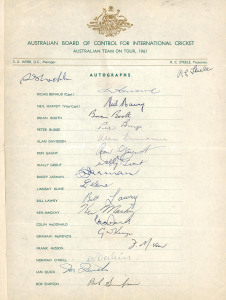 AUSTRALIAN BOARD OF CONTROL FOR INTERNATIONAL CRICKET
AUSTRALIAN TEAM ON TOUR, 1961
R. C. STEELE, Treasurer
R C Steele
AUTOGRAPHS
RICHIE BENAUD (Capt.)
NEIL HARVEY (Vice-Capt.) Neil Harvey
BRIAN BOOTH Brian Booth
PETER BURGE Peter Burge
ALAN DAVIDSON
RON GAUNT Ron Gaunt
WALLY GROUT Wally Grout
BARRY JARMAN Jarman
LINDSAY KLINE Kline
BILL LAWRY Bill Lawry
KEN MACKAY Ken Mackay
COLIN McDONALD
GRAHAM McKENZIE
FRANK MISSON
NORMAN O'NEILL
IAN QUICK Ian Quick
BOB SIMPSON Bob Simpson